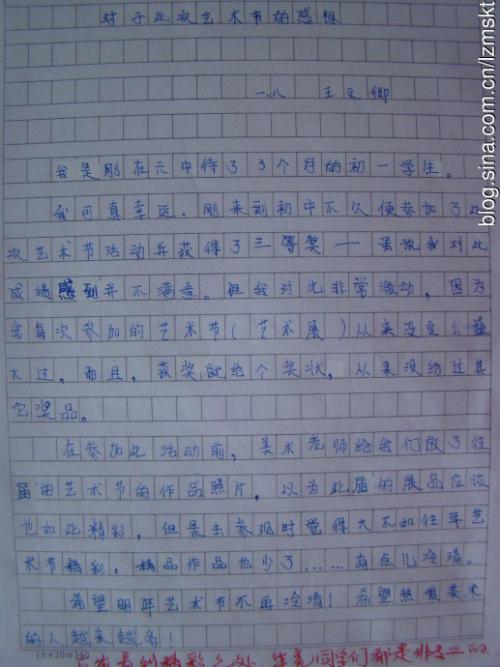 对于此次艺术节的感想
一.八 王文卿
我是刚在六中待了3个月的初一学生。
我可真幸运，刚来到初中不久便参加了此
次艺术节活动并获得了三等奖——虽说我对此
成绩感到并不满意。但我对此非常激动，因为
每次参加的艺术节(艺术展)从来没这么盛
大过，而且，获奖就给个奖状，从来没给过其
它奖品。
在参加此活动前，美术老师给我们放了往
届的艺术节的作品照片，以为此届的展品应该
也如此精彩，但是去参观时觉得大不如往年艺
术节精彩，精品作品也少了……有点儿冷清。
希望明年艺术节不再冷清！希望热爱美术
的人越来越多！
15×20=300
没有看到精彩之处 同学们都是非专业的
blog.sina.com.cn/lzmskt